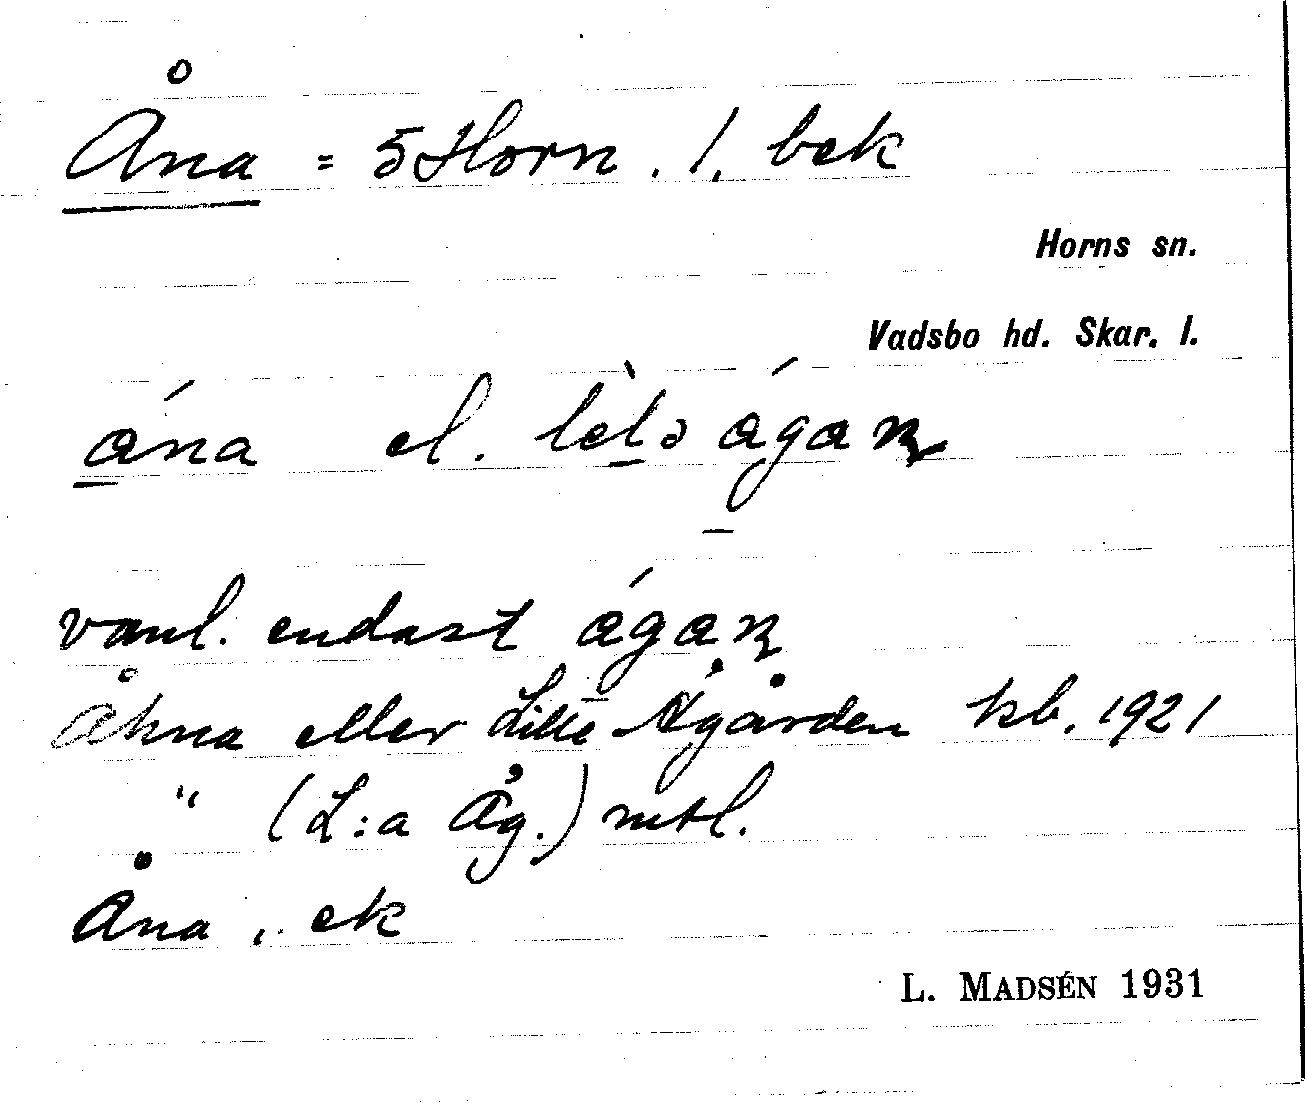 Åna = 5 Horn. /. bek
Horns sn.
Vadsbo hd. Skar. l.
ána el. lèlə ágaɳ
vanl. endast ágaɳ
Åkna eller Lille Ågården kb. 1921
" (L:a Åg.) mtl.
Åna, ek
L. MADSÉN 1931